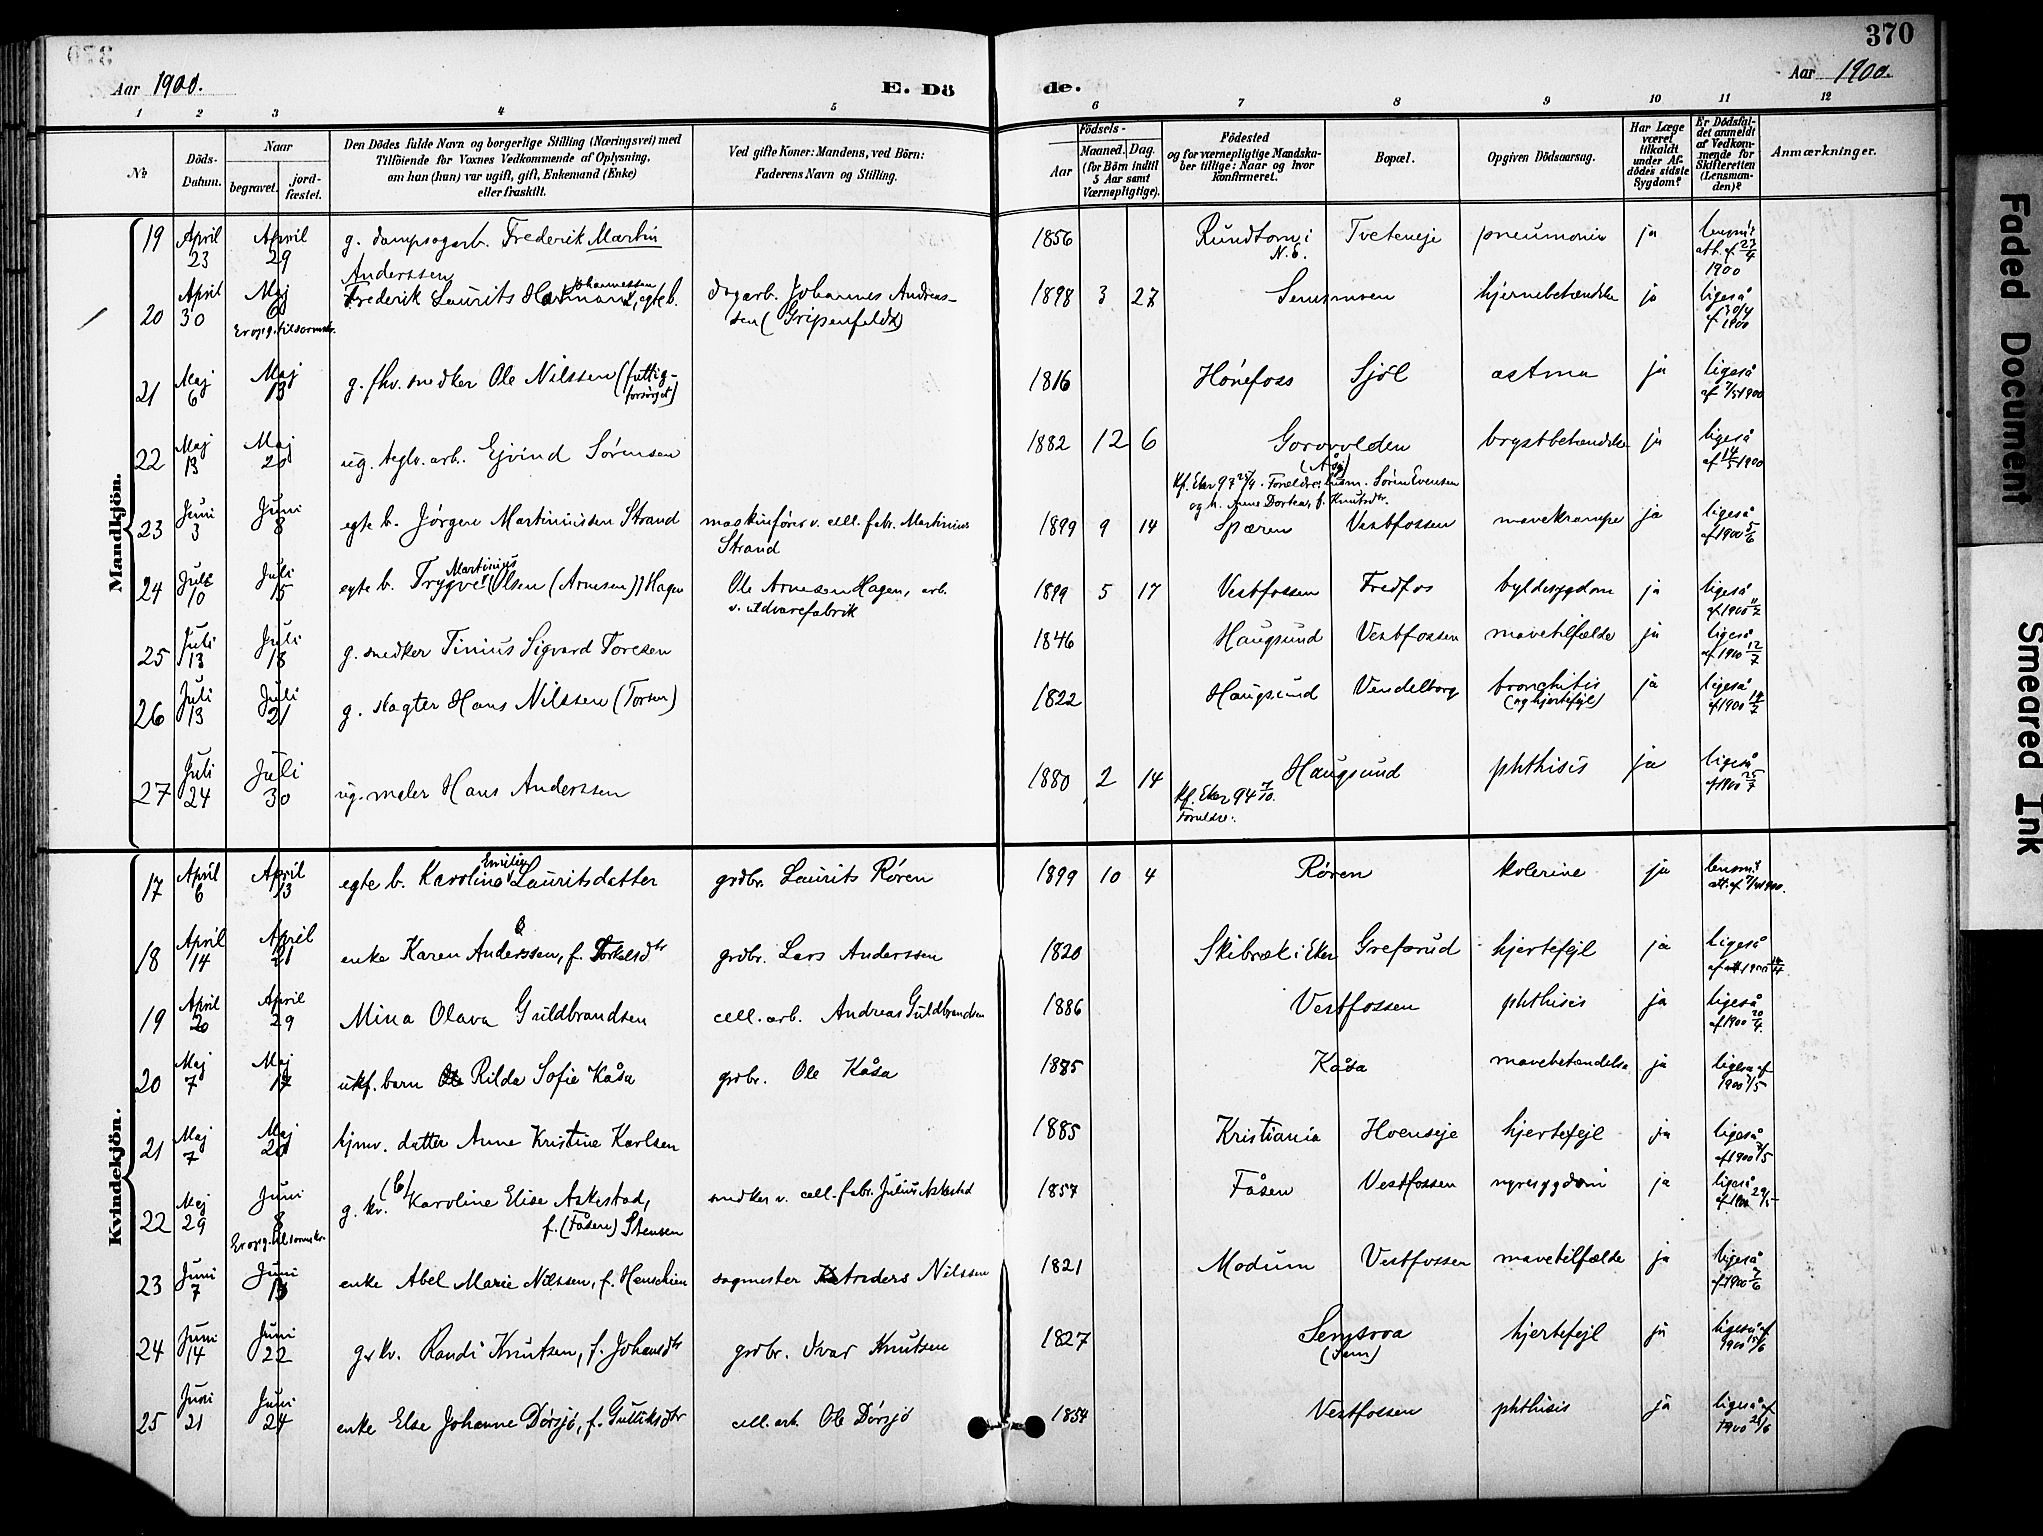 370
Aar 1900.
E. Dö de.
Aar 1900.
1 2 3 4 5 6 7 8 9 10 11 12
№
Döds-Datum.
Naar
begravet.
jord-fæstet.
Den Dödes fulde Navn og borgerlige Stilling (Næringsvei) med
Tilföiende for Voxnes Vedkommende af Oplysning,
om han (hun) var ugift, gift, Enkemand (Enke)
eller fraskilt.
Ved gifte Koner: Mandens, ved Börn:
Faderens Navn og Stilling.
Födsels-
Aar
Maaned. Dag.
(for Börn indtil
5 Aar samt
Værnepligtige).
Födested
og for værnepligtige Mandska-
ber tillige: Naar og hvor
konfirmeret.
Bopæl.
Opgiven Dödsaarsag.
Har Læge
været
tilkaldt
under Af-
dödes sidste
Sygdom?
Er Dödsfal-
det anmeldt
af Vedkom-
mende for
Skifteretten
(Lensman-
den)?
Anmærkninger.
Mandkjön.
19 April 23 April 29 g. dampsagarb. Frederik Martin Anderssen 1856 Rundtom i N.E. Tveteneje pneumonia ja lensm. att. af 27/4 1900
20 April 30 Maj 6 Frederik Laurits Johannessen, egte b. dagarb. Johannes Andreas-
sen (Gripenfeldt) 1898 3 27 Semsmoen hjernebetændelse ja ligeså af 30/4 1900
21 Maj 6 Maj 13 g. fhv. snedker Ole Nilssen (fattig-
forsørget) 1816 Hönefoss Sjöl astma ja ligeså af 7/5 1900
22 Maj 13 Maj 20 ug. teglv. arb. Ejvind Sørensen 1882 12 6 brystbetændelse ja ligeså af 14/5 1900
Kf. Eker 97 Søren Evensen
og h. Anne Dortea, f. Knutsdtr.
23 Juni 3 Juni 8 egte b. Jørgen Martiniussen Strand maskinfører v. cell. fabr. Martinius
Strand 1899 9 14 Spæren Vestfossen mavekrampe ja ligeså af 1900 5/6
24 Juli 10 Juli 15 egte b. Trygve Martinius Olsen (Arnesen) Hagen Ole Arnesen Hagen, arb.
v. uldvarefabrik 1899 5 17 Vestfossen Fredfos byldesygdom ja ligeså af 1900 11/7
25 Juli 13 Juli 18 g. snedker Tinius Sigvard Toresen 1846 Haugsund Vestfossen mavetilfælde ja ligeså af 1900 12/7
26 Juli 13 Juli 21 g. slagter Hans Nilssen (Torsen) 1822 Haugsund Vendelborg bronchitis
(og hjertefejl) ja ligeså af 1900 14/7
27 Juli 24 Juli 30 ug. maler Hans Anderssen 1880 2 14 Haugsund phthisis ja ligeså af 1900 25/7
Kf. Eker 94 7/10.
Foreldre:
Kvindekjön.
17 April 6 April 13 egte b. Karoline Emilie Lauritsdatter grdbr. Laurits Røren 1899 10 4 Røren kolerine ja lensm. att. af 7/4 1900.
18 April 14 April 21 enke Karen Anderssen, f. Torkelsdtr grdbr. Lars Anderssen 1820 Skibræk i Eker Grefsrud hjertefejl ja ligeså af 1900 14/4
19 April 20 April 29 Mina Olava Guldbrandsen cell. arb. Andreas Guldbrandsen 1886 Vestfossen phthisis ja ligeså af 1900 20/4.
20 Maj 7 Maj 17 ukf. barn Rilda Sofie Kåsa grdbr. Ole Kåsa 1885 Kåsa mavebetændelse ja ligeså af 1900 7/5
21 Maj 7 Maj 20 hjmv. datter Anne Kristine Karlsen 1885 Kristiania Hoenseje hjertefejl ja ligeså af 1900 7/5
22 Maj 29 Juni 8 g. kv. Karoline Elise Askestad,
f. (Fåsen) Stensen snedker v. cell. fabr. Julius Askestad 1857 Fåsen Vestfossen nyresygdom ja ligeså af 1900 29/5
23 Juni 7 Juni 13 enke Abel Marie Nilssen, f. Henschien sagmester Anders Nilssen 1821 Modum Vestfossen mavetilfælde ja ligeså af 1900 7/6
24 Juni 14 Juni 22 g. kv. Randi Knutsen, f. Johansdtr grdbr. Ivar Knutsen 1827 Semsroa
(Sem) hjertefejl ja ligeså af 1900 15/6
25 Juni 21 Juni 24 enke Else Johanne Dørsjø, f. Gulliksdtr cell. arb. Ole Dørsjø 1854 Vestfossen phthisis ja ligeså af 1900 21/6
Faded Document
Smeared Ink